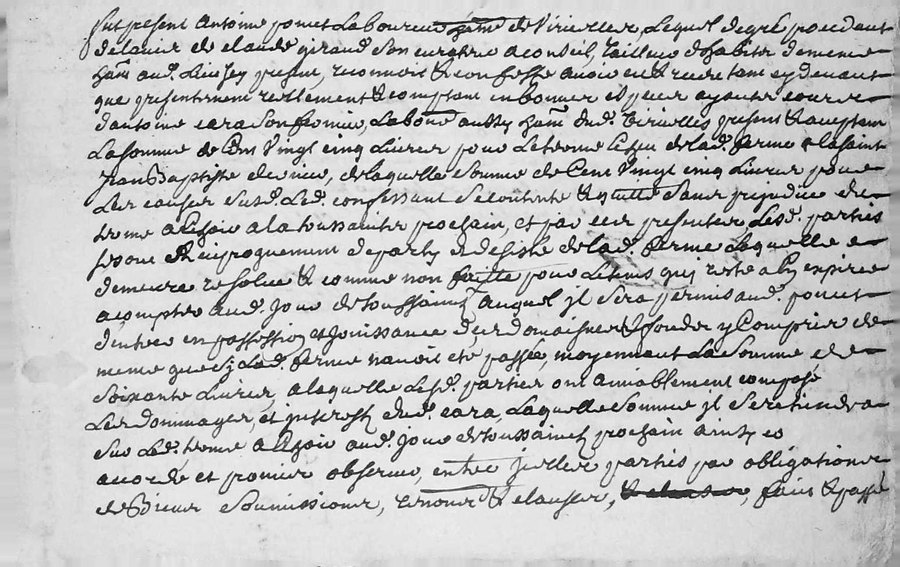 fut present antoine poncet Laboureur habt de virieller, Lequel de gré procedant
de lavis de claude giraud son curateur a conseil, tailleur d'habits demeurant
habt aud. lieu Icy present, reconnoit & confesse avoir eu & receu tant cy devant
que presentement reellement & comptant en bonnes especes ayant cours
d'antoine cara son fermier, Labour aussy habt dud. virielles present & acceptant
La somme de Cent Vingt cinq Livres pour Le terme echeu de lad. ferme a la saint
Jean Baptiste dernier, de Laquelle somme de Cent Vingt cinq Livres pour
Les causes susd. Led. confessant se contente & quitte sans prejudice du
terme a echoir a la toussaints prochain, et par ces presentes Lesd. parties
se sont Reciproquement departy & desisté de lad. ferme Laquelle
demeure resolue & comme non faitte pour Le tems qui reste a en expirer
a compter aud. jour de toussaints auquel jl sera permis aud. poncet
d'entrer en possession et jouissance des domaines & fonds y Compris de
meme que si Lad. ferme n'avoit eté passée, moyennant La somme de
soixante Livres, a laquelle Lesd. parties ont amiablement composé
Les dommages, et interest dud. cara, Laquelle somme jl se retiendra
sur Led. terme a echoir aud. jour de toussaints prochain ainsy
accordé et promis observer, entre jcelles parties par obligations
de Biens soumissions, renonc. & clauses, & clauses, fait & passé